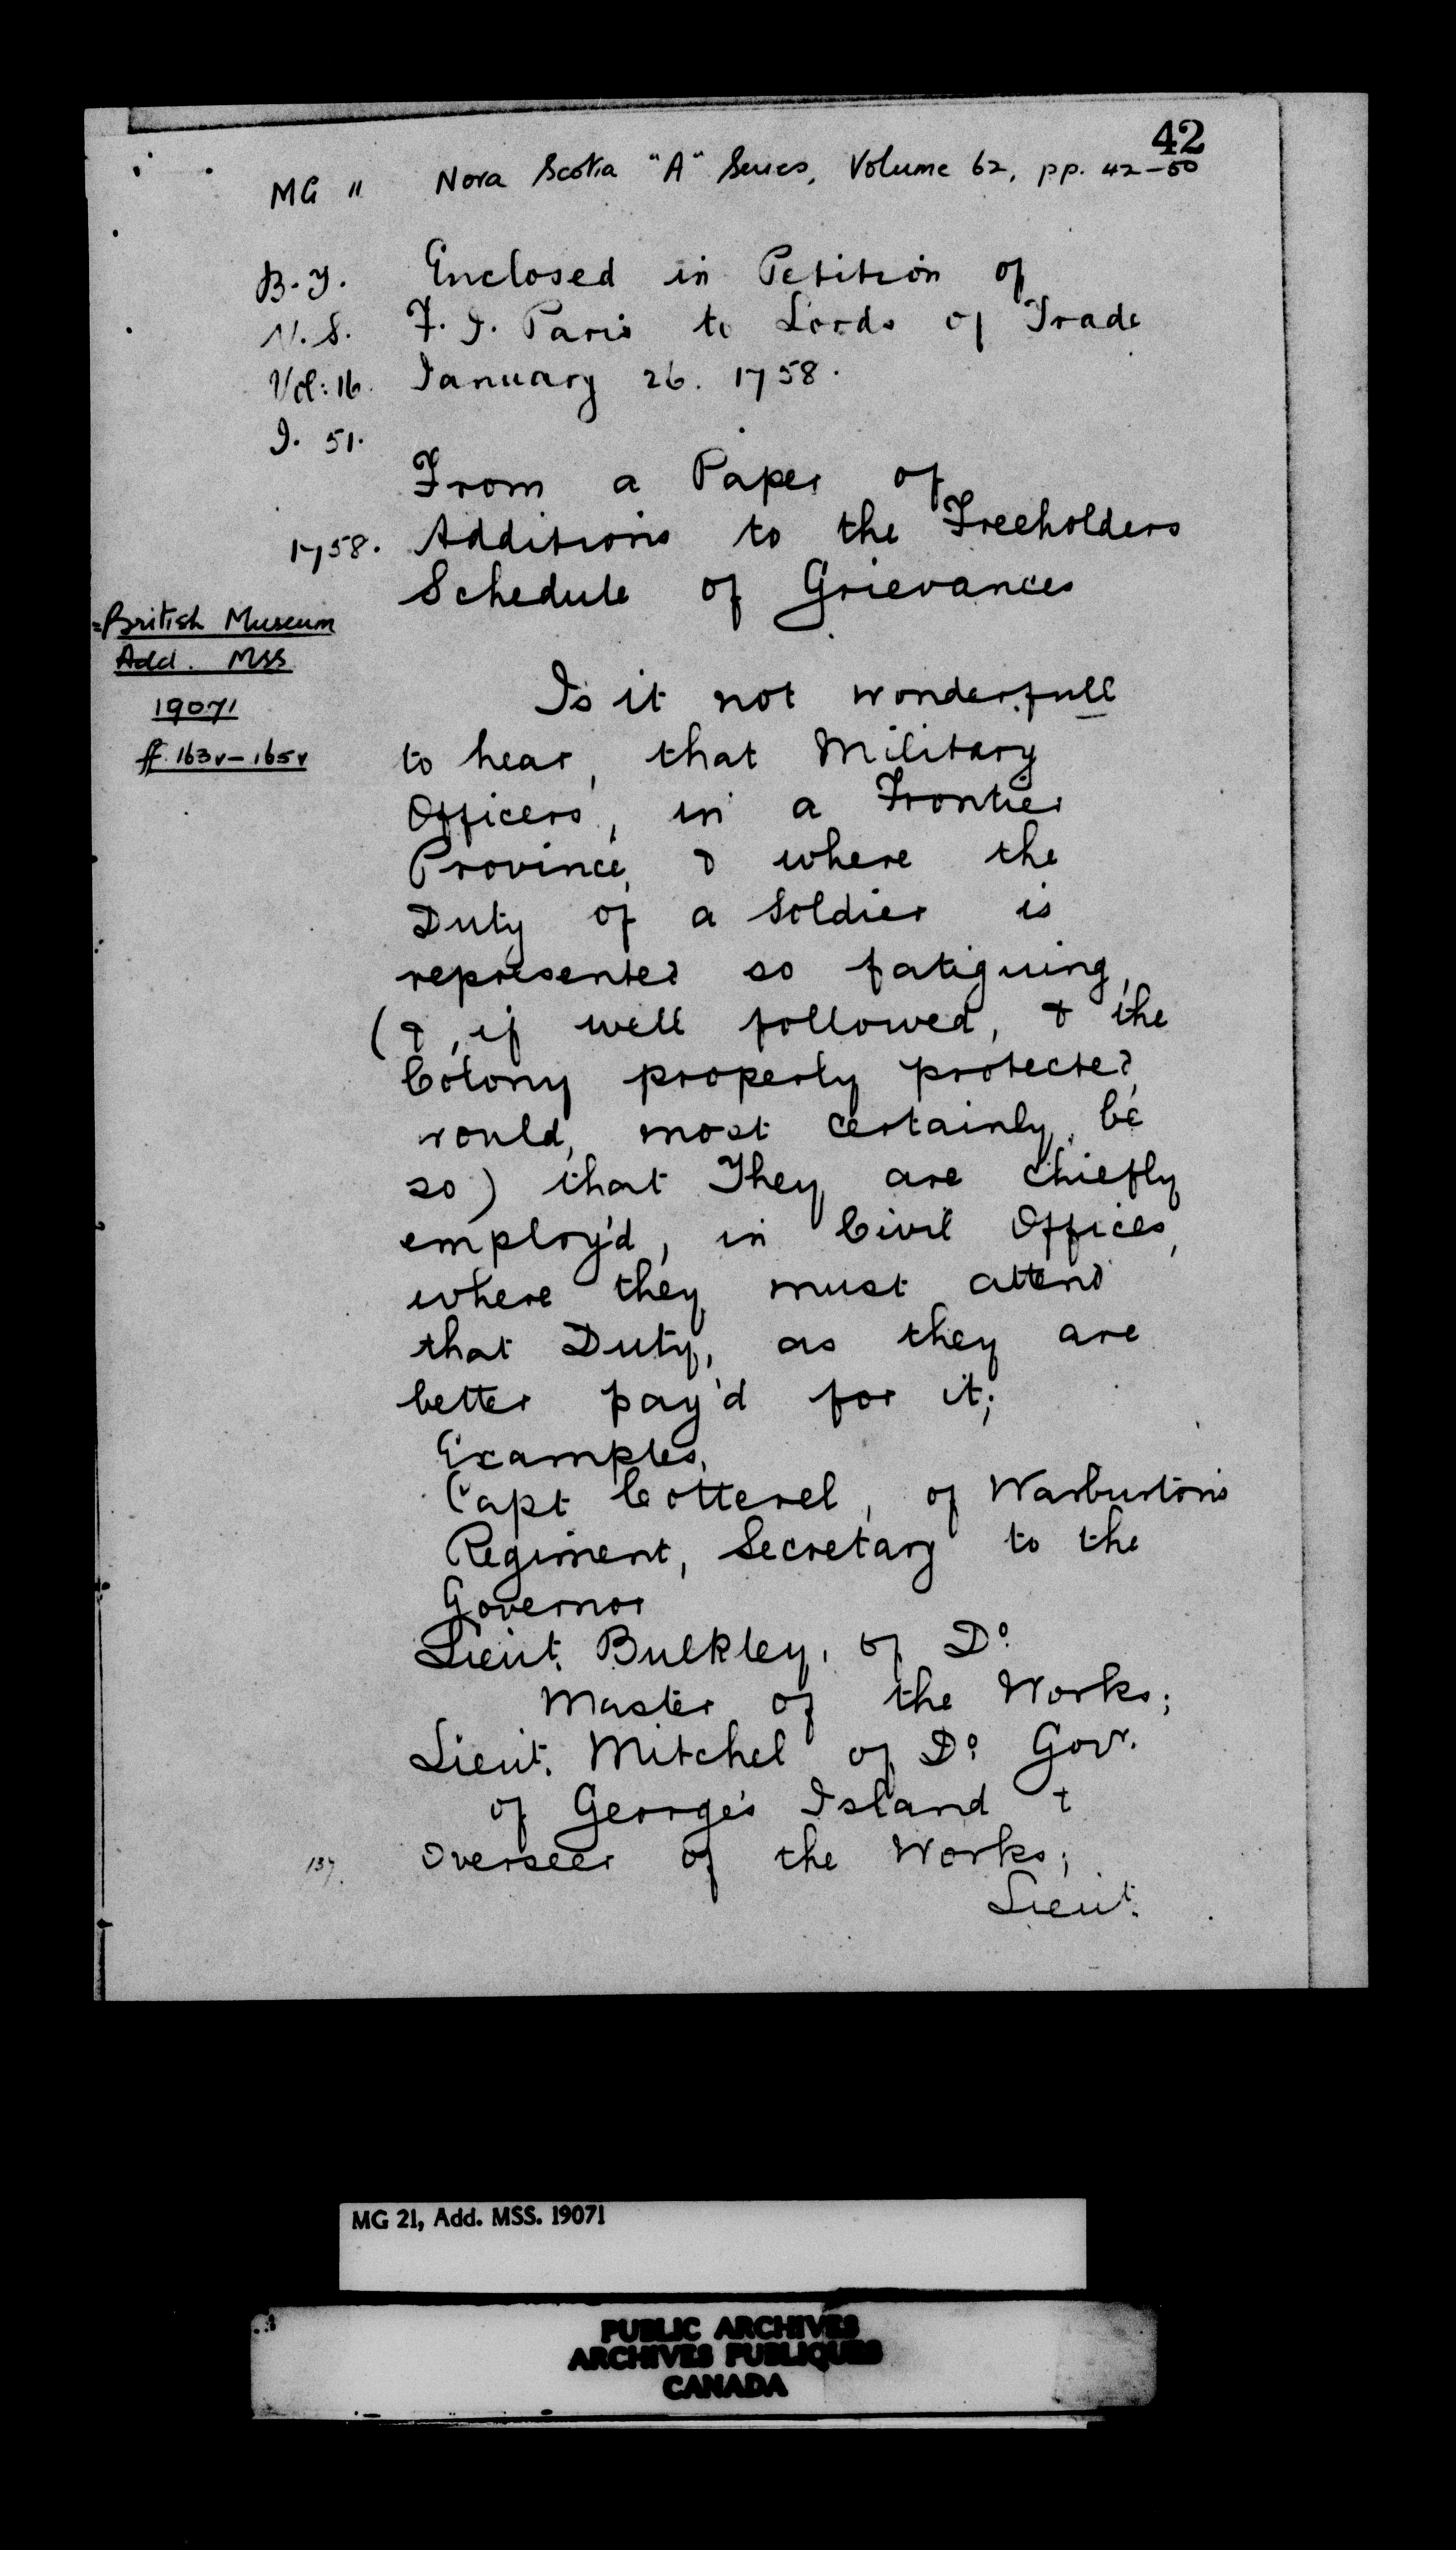 42
MG 11 Nova Scotia "A" Series, Volume 62, pp. 42-50
B.T. Enclosed in Petition of
N.S. F. J. Paris to Lords of Trade
Vol: 16. January 26. 1758.
J. 51.
From a Paper of
1758. Additions to the Freeholders
Schedule of Grievances
=British Museum
Add. MSS
19071
ff. 163v-165v
Is it not wonderfull
to hear, that Military
Officers, in a Frontier
Province, & where the
Duty of a Soldier is
represented so fatiguing,
(& , if well followed, & the
Colony properly protected,
would, most certainly, be
so) that They are chiefly
employ'd, in Civil Offices,
where they must attend
that Duty, as they are
better pay'd for it;
Examples,
Capt Cotterel, of Warburton's
Regiment, Secretary to the
Governor
Lieut. Bulkley, of Do.
Master of the Works;
Lieut. Mitchel of Do. Govr.
of George's Island &
137. Overseer of the Works;
Lieut.
MG 21, Add. MSS. 19071
PUBLIC ARCHIVES
ARCHIVES PUBLIQUES
CANADA